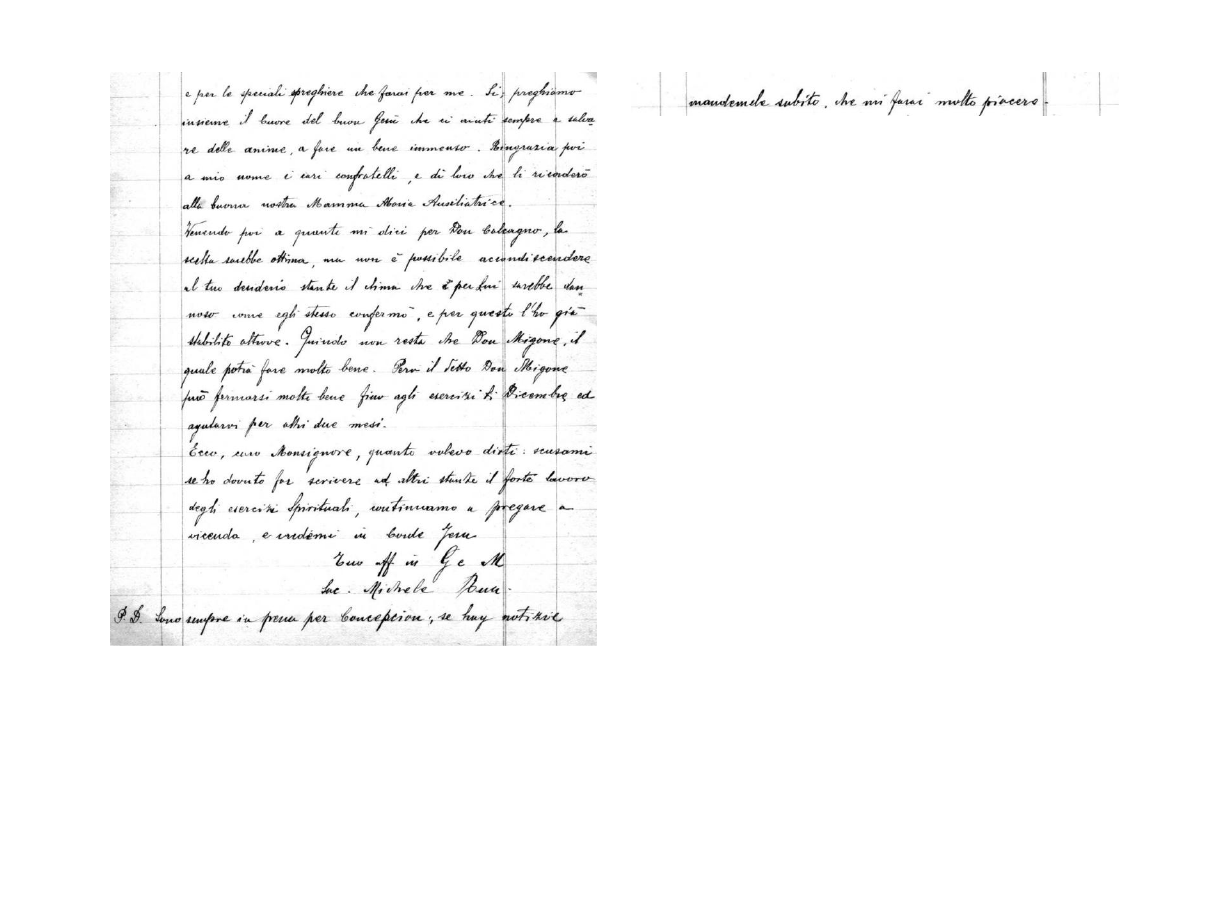 e per le speciali preghiere che farai per me. Si, preghiamo
insieme il Cuore del buon Gesù che ci aiuti sempre a salva
re delle anime, a fare un bene immenso. Ringrazia poi
a mio nome i cari confratelli, e di loro che li ricorderò
alla buona nostra Mamma Maria Ausiliatrice.
Venendo poi a quanto mi dici per Don Calcagno, la
scelta sarebbe ottima, ma non è possibile accondiscendere
al tuo desiderio stante il clima che per Lui sarebbe dan
noso come egli stesso confermò, e per questo l'ho già
stabilito altrove. Quindo non resta che Don Migone, il
quale potrà fare molto bene. Pero il detto Don Migone
può fermarsi molto bene fino agli esercizi di Dicembre ed
ajutarvi per altri due mesi.
Ecco, caro Monsignore, quanto volevo dirti: scusami
se ho dovuto far scrivere ad altri stante il forte lavoro
degli esercizi Spirituali, continuamo a pregare a
vicenda, e credemi in Corde Jesu
Tuo aff in G e M
Sac. Michele Rua.
P. S. Sono sempre in pena per Concepcion; se hay notizie
mandemele subito, che mi farai molto piacere.